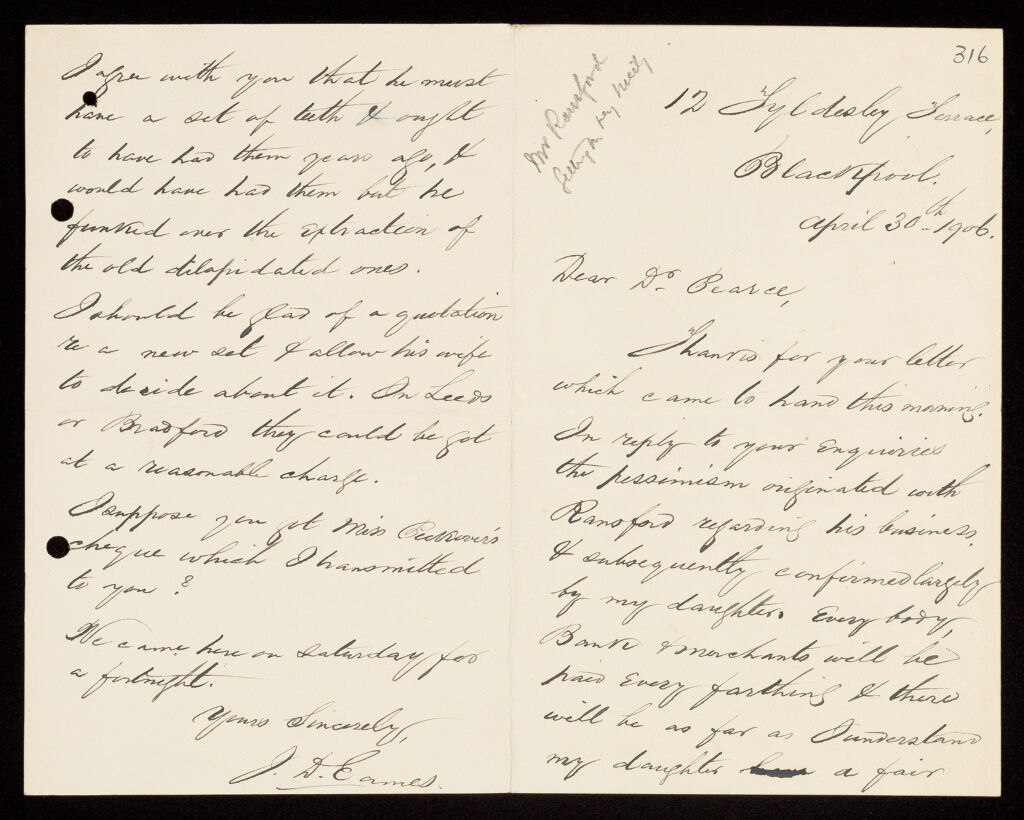 316
Mr Ransford
12 Tyldesley Terrace,
Blackpool.
April 30th 1906.
Dear Dr Pearce,
Thanks for your letter
which came to hand this morning.
In reply to your enquiries
the pessimism originated with
Ransford regarding his business,
& subsequently confirmed largely
by my daughter. Every body,
Bank & merchants will be
paid every farthing & there
will be as far as I understand
my daughter a fair
I agree with you that he must
have a set of teeth & ought
to have had them years ago, &
would have had them but he
funked over the extraction of
the old dilapidated ones.
I should be glad of a quotation
re a new set & allow his wife
to decide about it. In Leeds
or Bradford they could be got
at a reasonable charge.
I suppose you got Miss Peckover's
cheque which I transmitted
to you?
We came here on Saturday for
a fortnight.
Yours Sincerely,
J. D. Eames.